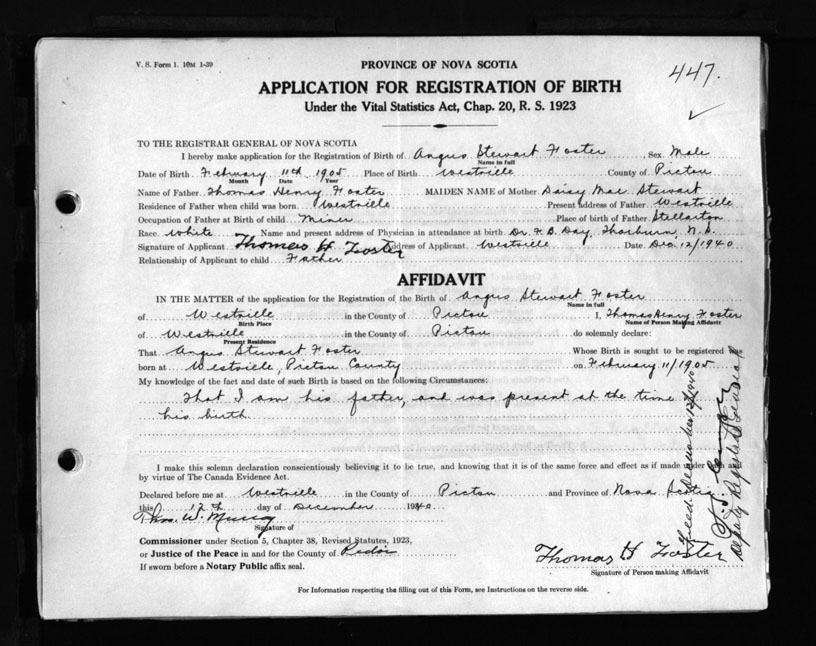 V. S. Form 1. 10M 1-39
PROVINCE OF NOVA SCOTIA
447.
APPLICATION FOR REGISTRATION OF BIRTH
Under the Vital Statistics Act, Chap. 20, R. S. 1923
TO THE REGISTRAR GENERAL OF NOVA SCOTIA
I hereby make application for the Registration of Birth of Angus Stewart Foster Sex Male
Name in full
Date of Birth February 11th 1905 Place of Birth Westville County of Pictou
Month Date Year
Name of Father Thomas Henry Foster MAIDEN NAME of Mother Daisy Mae Stewart
Residence of Father when child was born Westville Present address of Father Westville
Occupation of Father at Birth of child Miner Place of birth of Father Stellarton
Race White Name and present address of Physician in attendance at birth Dr. F. B. Day, Thorburn, N.S.
Signature of Applicant Thomas H Foster Address of Applicant Westville Date Dec 12/1940
Relationship of Applicant to child Father
AFFIDAVIT
IN THE MATTER of the application for the Registration of the Birth of Angus Stewart Foster
Name in full
of Westville in the County of Pictou I, Thomas Henry Foster
Birth Place Name of Person Making Affidavit
of Westville in the County of Pictou do solemnly declare:
Present Residence
That Angus Stewart Foster Whose Birth is sought to be registered was
born at Westville, Pictou County on February 11/1905
My knowledge of the fact and date of such Birth is based on the following Circumstances:
That I am his father, and was present at the time
his birth
I make this solemn declaration conscientiously believing it to be true, and knowing that it is of the same force and effect as if made under oath and
by virtue of The Canada Evidence Act.
Declared before me at Westville in the County of Pictou and Province of Nova Scotia
this 12th day of December 1940
Thos. W. Murray
Signature of
Commissioner under Section 5, Chapter 38, Revised Statutes, 1923,
or Justice of the Peace in and for the County of Pictou
If sworn before a Notary Public affix seal.
Thomas H Foster
Signature of Person making Affidavit
For Information respecting the filling out of this Form, see Instructions on the reverse side.
Deputy Registrar General